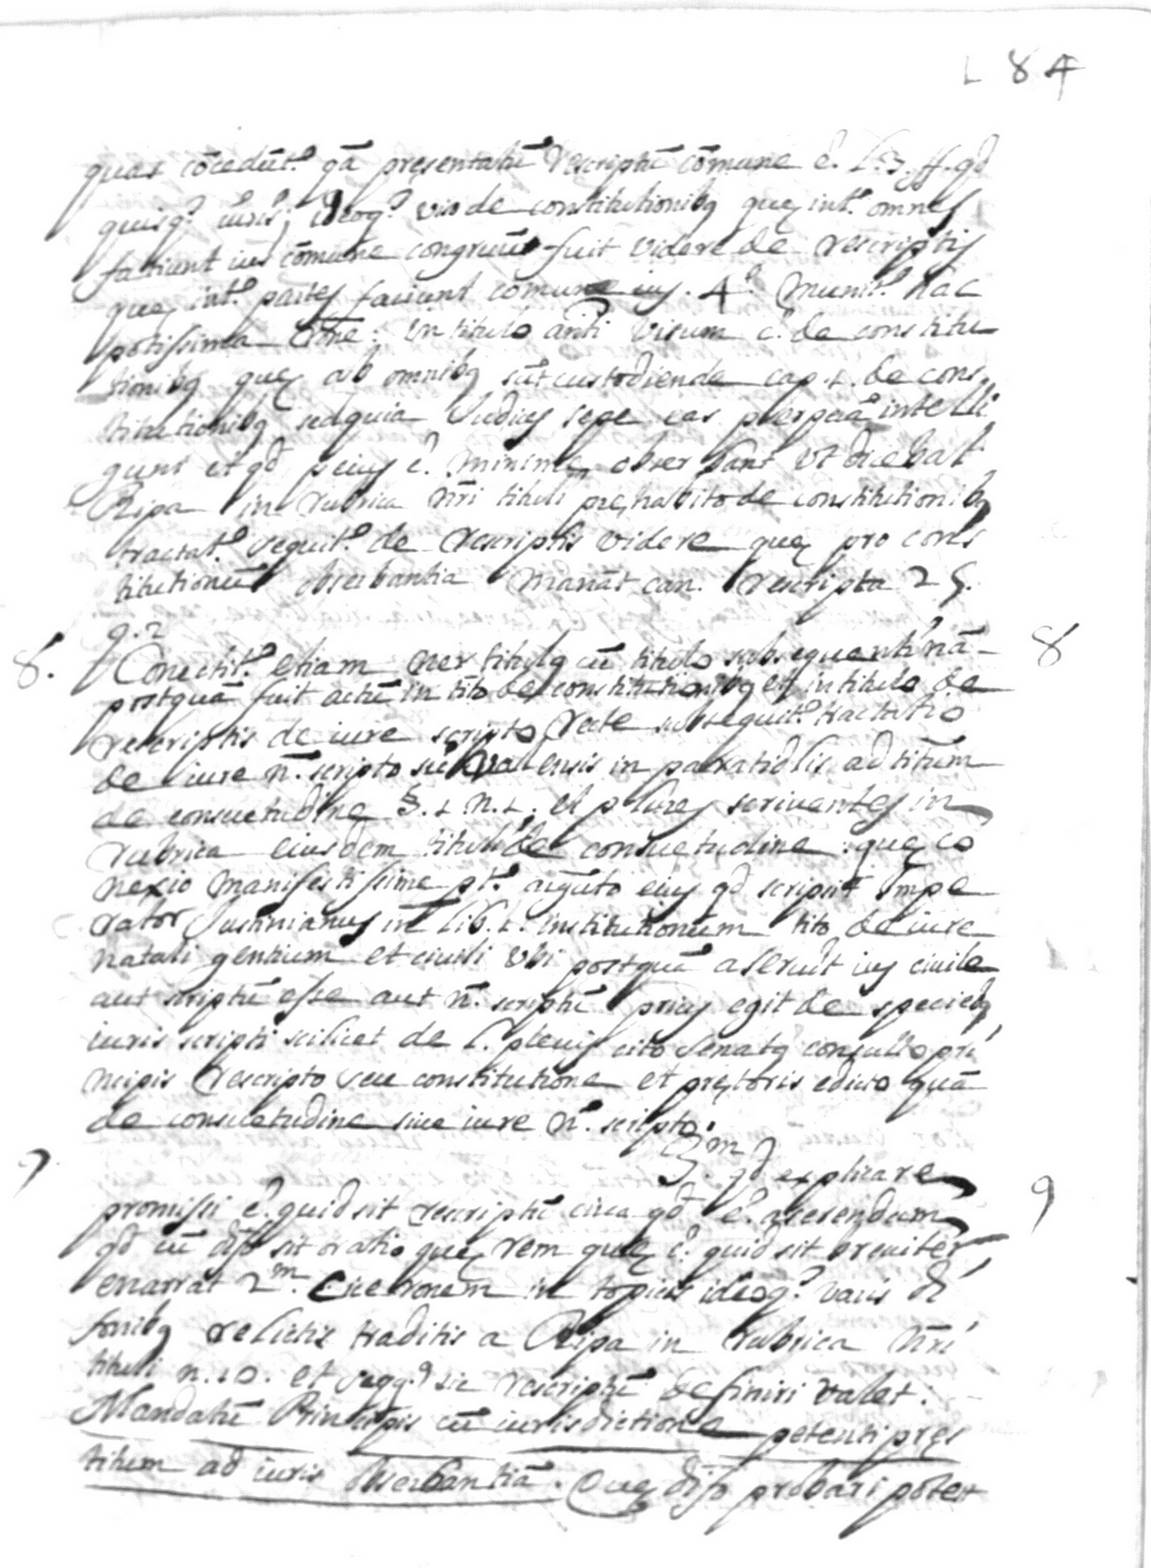 184
quas cōcedūt.ͬ q̄a presentatū Rescriptū cōmune ē. L. 3. ff. qd̄
quisq.ͤ iuris; ideoq.ͤ viso de constitutionibq quę int.ͬ omnes
faciunt ius cōmune congruum fuit videre de rescriptis
quę int.ͬ partes faciunt comune ius. 4.º Munit.ͬ hac
potissima rōne: in titulo anti visum ē. de constitu
tionibq quę ab omnibq sūt custodiende cap. 1. de cons
titutionibq sed quia Iudices sepe eas perperā intelli
gunt et qd̄ peius ē. minime observant ut dicebat
Ripa in rubrica nr̄i tituli pręhabito de constitutionibq
tractat.º sequit.ͬ de rescriptis videre quę pro cons
titutionū observantia manāt can. rescripta 25.
q. 2
8. Conectit.ͬ etiam ner titulq cū titulo subsequenti nā 8
postquā fuit actū in tit̄o de constitutionibq et in titulo de
rescriptis de iure scripto recte subsequit.ͬ tractatio
de iure n̄. scripto sic Valensis in paratitlis ad titūm
de consuetudine §. 1. n. 1. et plures scriventes in
rubrica eiusdem tituli de consuetudine: quę co
nexio manifestissime pt.ͬ argūto eius qd̄ scripsit Impe
rator Justinianus in lib. 1. institutionum tito de iure
natali gentium et civili ubi postquā aseruit ius civile
aut scriptū esse aut n̄. scriptū prius egit de speciebq
iuris scripti scilicet de l. plevis cito Senatq consulto pri
ncipis rescripto seu constitutione et prętoris edicto quā
de consuetudine sive iure n̄. scripto.
9 3.ᵐ qd̄ explicare 9
promissi ē. quid sit rescriptū circa qd̄ ē. aserendum
qd̄ cū difo sit oratio quę rem quę ē. quid sit breviter
enarrat 2.ᵐ Ciceronem in topicis ideoq.ͤ variis di
fonibq relictis traditis a Ripa in rubrica nr̄i
tituli n. 10. et seqq.ͬ sic rescriptū definiri valet:
Mandatū Principis cū iurisdictione petenti pręs
titum ad iuris observantiā. Quę difo probari potest